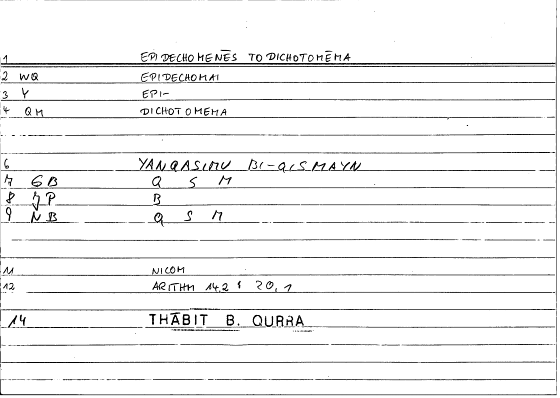 1 EPIDECHOMENĒS TO DICHOTOMĒMA
2 WQ EPIDECHOMAI
3 Y EPI-
4 QM DICHOTOMEMA
6 YANQASIMU BI-QISMAYN
7 GB Q S M
8 JP B
9 NB Q S M
11 NICOM
12 ARITHM 14,2 20,1
14 THĀBIT B. QURRA